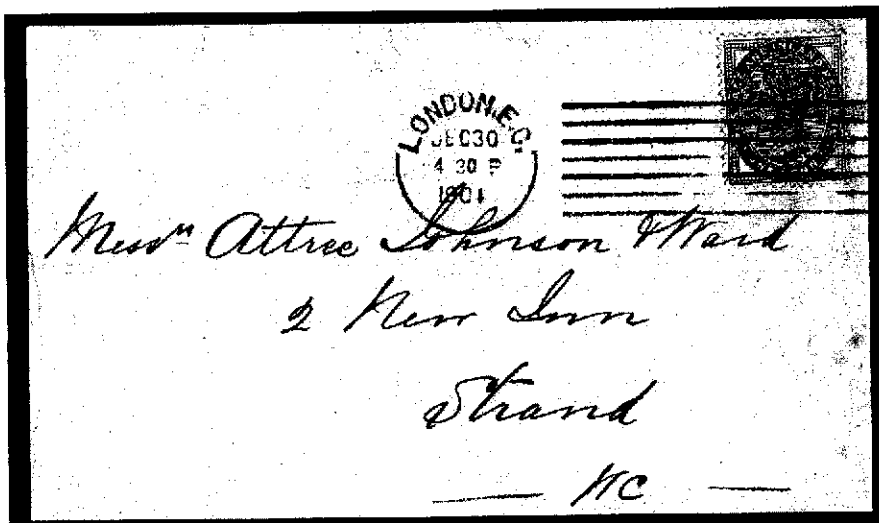 LONDON.E.C.
DEC 30
4 30 P
1901
Messrs Attree Johnson & Ward
2 New Inn
Strand
WC